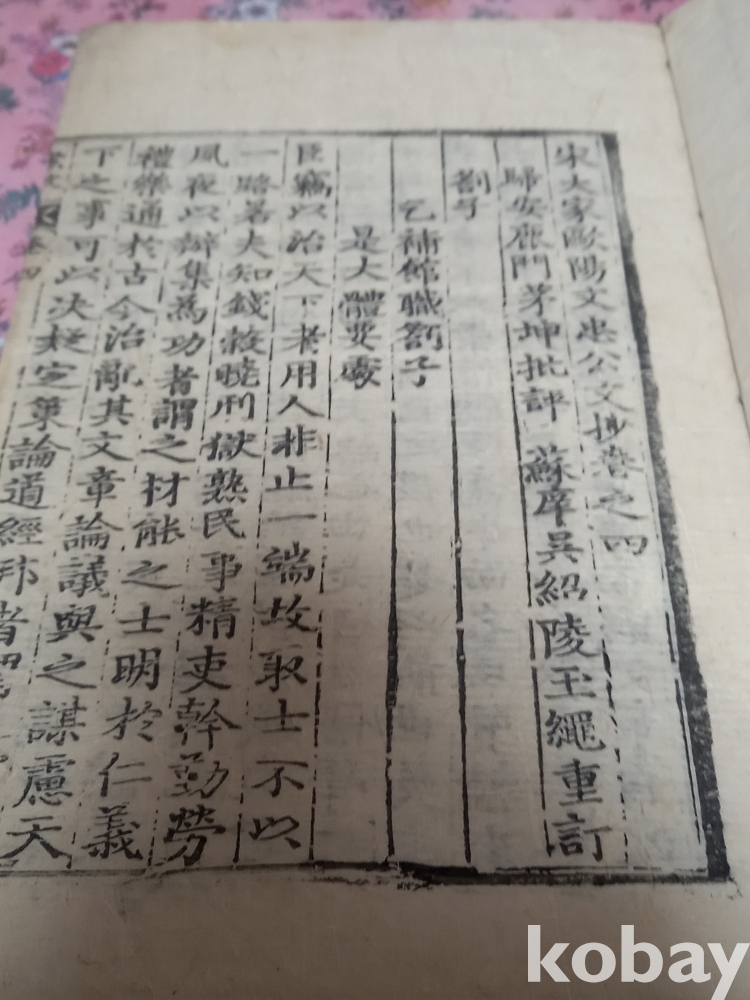 宋大家歐陽文忠公文抄卷之四
歸安鹿門茅坤批評 蘇庠吳紹陵玉繩重訂
劄子
乞補館職劄子
是大體要處
臣竊以治天下者用人非止一端故取士不以
一路若夫知錢穀曉刑獄熟民事精吏幹勤勞
夙夜以辦集為功者謂之材能之士明於仁義
禮樂通於古今治亂其文章論議與之謀慮天
下之事可以决疑定策論道經邦者
kobay